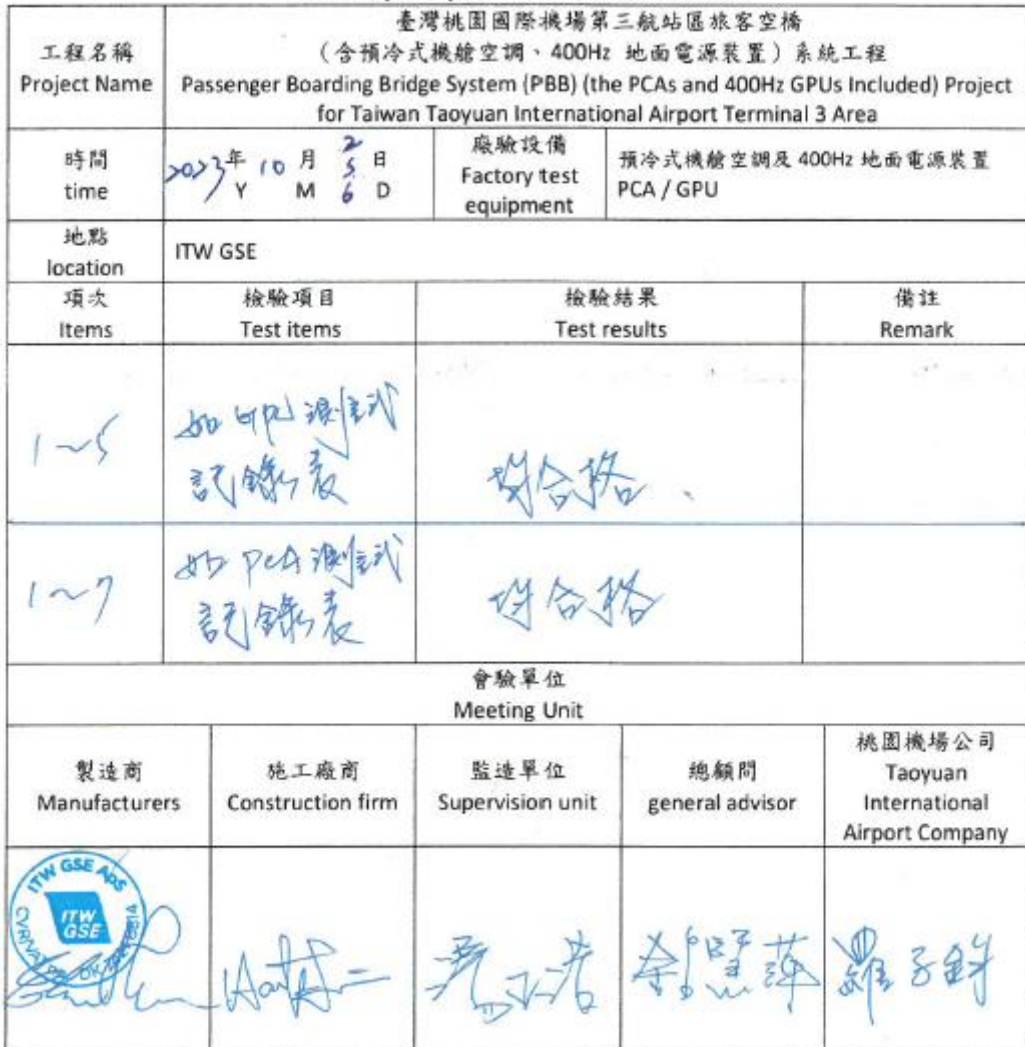 臺灣桃園國際機場第三航站區旅客空橋
工程名稱
（含預冷式機艙空調、400Hz 地面電源裝置）系統工程
Project Name
Passenger Boarding Bridge System (PBB) (the PCAs and 400Hz GPUs Included) Project
for Taiwan Taoyuan International Airport Terminal 3 Area
時間
time
2023年 10 月 2 5 6 日
Y M D
廠驗設備
Factory test
equipment
預冷式機艙空調及 400Hz 地面電源裝置
PCA / GPU
地點
location
ITW GSE
項次
Items
檢驗項目
Test items
檢驗結果
Test results
備註
Remark
1~5
如 GPU 測試
記錄表
均合格
1~7
如 PCA 測試
記錄表
均合格
會驗單位
Meeting Unit
製造商
Manufacturers
施工廠商
Construction firm
監造單位
Supervision unit
總顧問
general advisor
桃園機場公司
Taoyuan
International
Airport Company
ITW GSE ApS
ITW
GSE